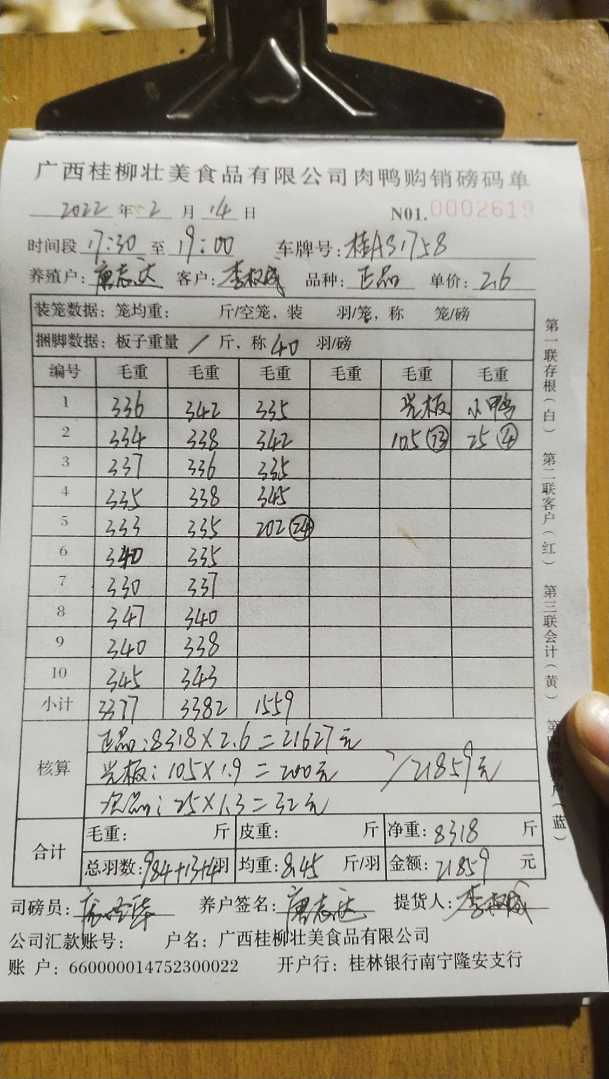 广西桂柳壮美食品有限公司肉鸭购销磅码单
2022 年 2 月 14 日 N01.0002619
时间段 17:30 至 19:00 车牌号: 桂A31758
养殖户: 唐志达 客户: 李权威 品种: 正品 单价: 2.6
装笼数据: 笼均重: 斤/空笼, 装 羽/笼, 称 笼/磅
捆脚数据: 板子重量 / 斤, 称 40 羽/磅
编号 毛重 毛重 毛重 毛重 毛重 毛重
1 336 342 335 光板 小鸭
2 334 338 342 105 (13) 25 (4)
3 337 336 335
4 335 338 345
5 333 335 202 (24)
6 340 335
7 330 337
8 347 340
9 340 338
10 345 343
小计 3377 3382 1559
核算
正品: 8318×2.6=21627元
光板: 105×1.9=200元 /21859元
次品: 25×1.3=32元
合计
毛重: 斤 皮重: 斤 净重: 8318 斤
总羽数: 984+13+4羽 均重: 8.45 斤/羽 金额: 21859 元
司磅员: 养户签名: 唐志达 提货人: 李权威
公司汇款账号: 户名: 广西桂柳壮美食品有限公司
账 户: 660000014752300022 开户行: 桂林银行南宁隆安支行
第一联存根(白) 第二联客户(红) 第三联会计(黄) 第 户(蓝)